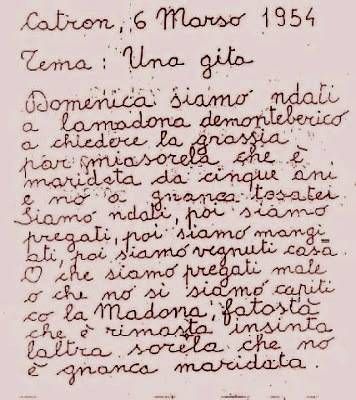 Catron, 6 Marso 1954
Tema: Una gita
Domenica siamo ndati
a lamadona demonteberico
a chiedere la grassia
par miasorela che è
maridata da cinque ani
e no à gnanca tosatei
Siamo ndati, poi siamo
pregati, poi siamo mangi
ati, poi siamo vegnuti casa.
O che siamo pregati male
o che no si siamo capiti
co la Madona, fatostà
che è rimasta insinta
laltra sorela che no
è gnanca maridata.